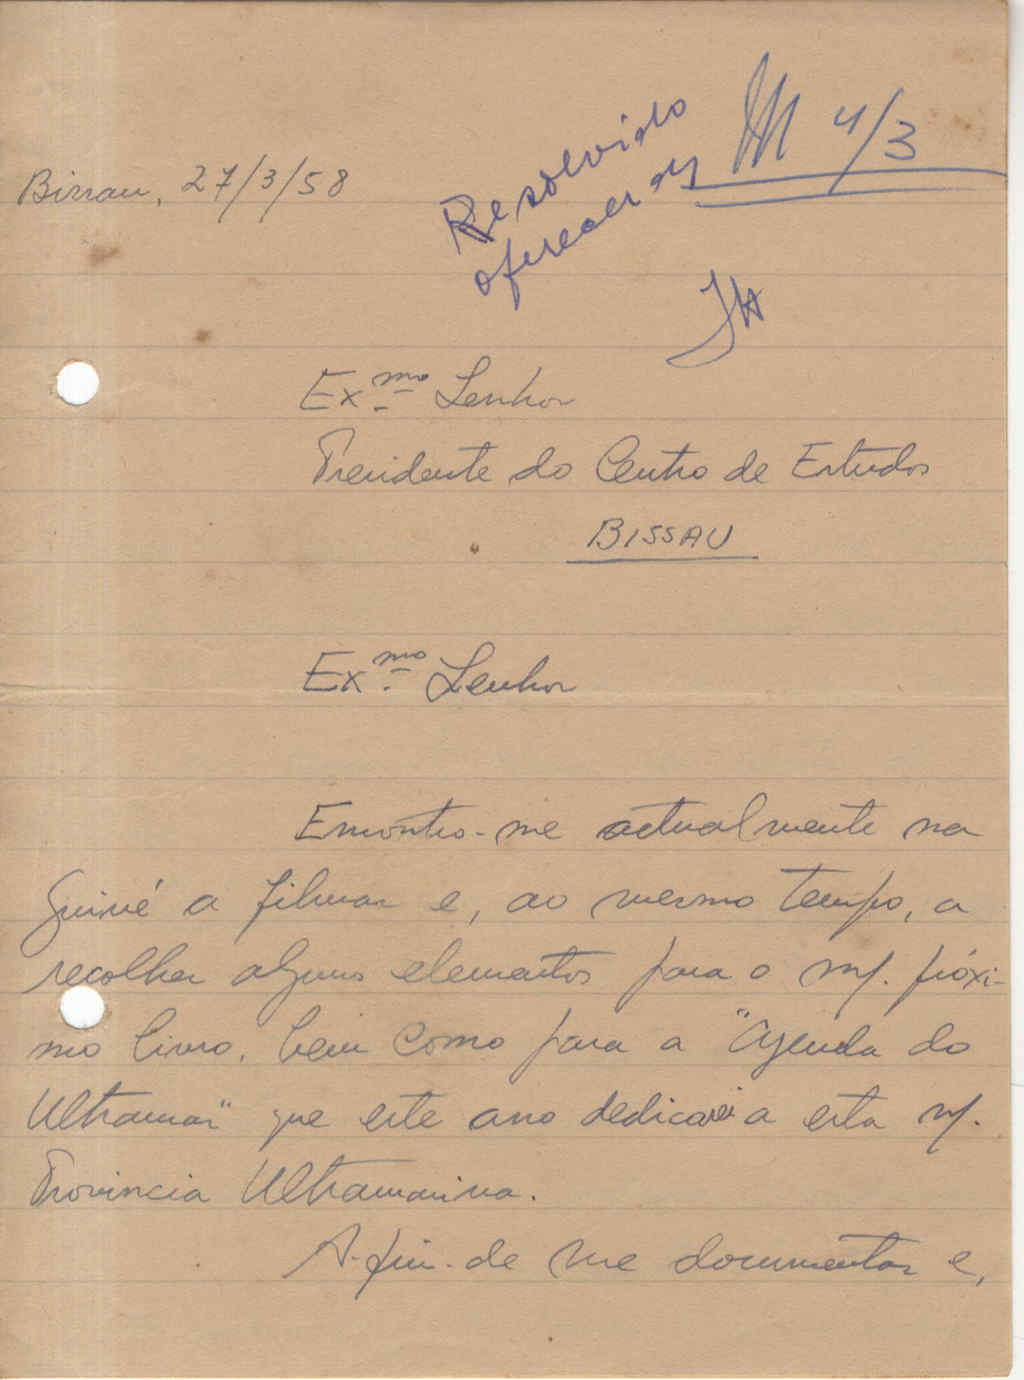 Bissau, 27/3/58
Resolvido
oferecer os
4/3
Ex.mo Senhor
Presidente do Centro de Estudos
BISSAU
Ex.mo Senhor
Encontro-me actualmente na
Guiné a filmar e, ao mesmo tempo, a
recolher alguns elementos para o m/. próxi-
mo livro, bem como para a "Agenda do
Ultramar" que este ano dedicarei a esta n/.
Provincia Ultramarina.
A-fim-de me documentar e,